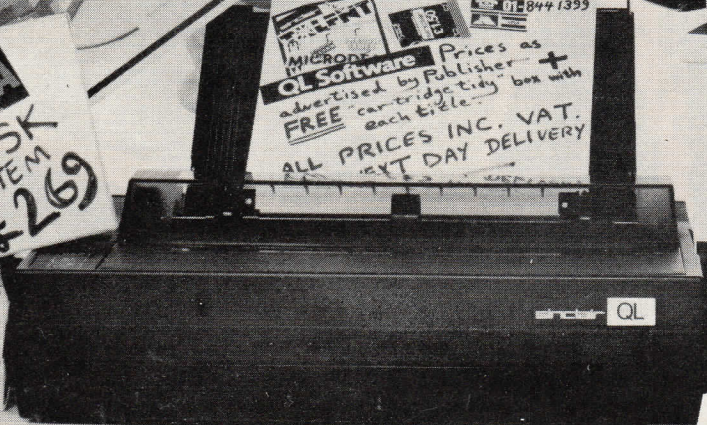 01-844 1399
MICRODE
QL Software
Prices as
advertised by Publisher +
FREE "cartridge tidy" box with
each title
ALL PRICES INC. VAT.
EXT DAY DELIVERY
SK
TEM
£269
sinclair QL